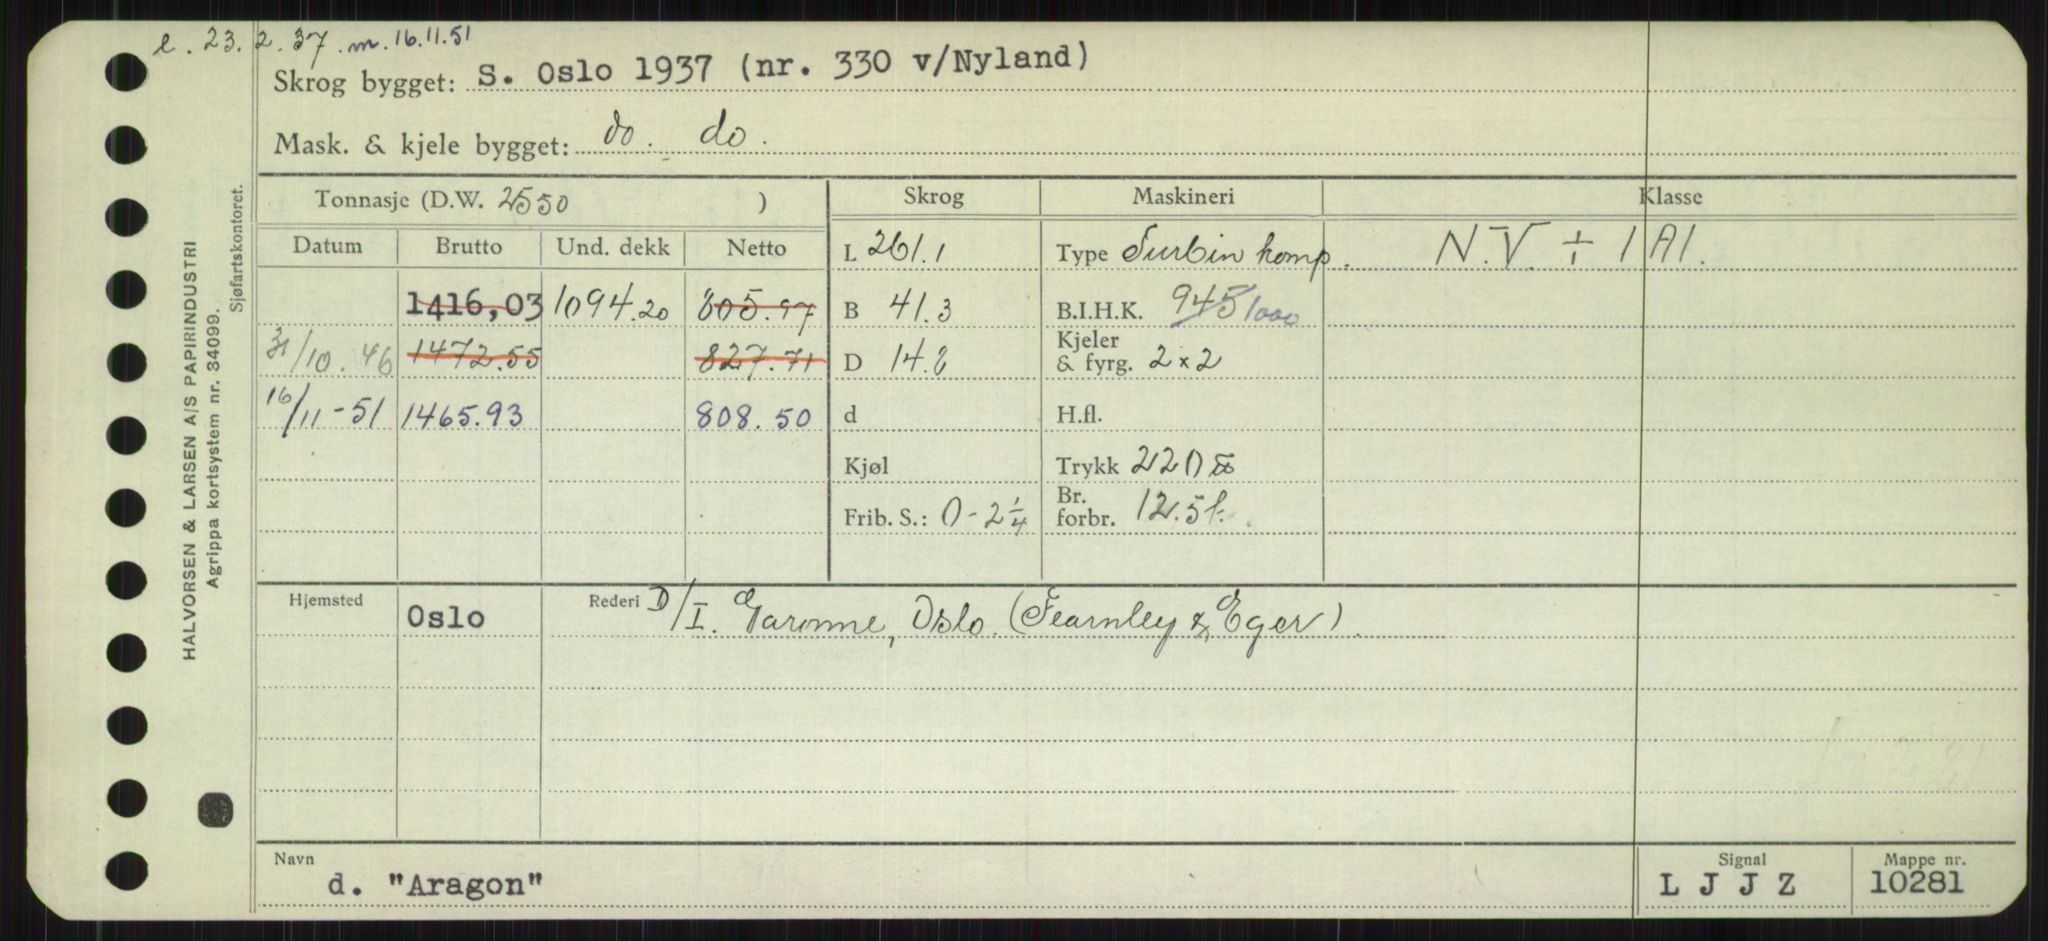 e. 23. 2. 37. m. 16.11.51
Skrog bygget: S. Oslo 1937 (nr. 330 v/Nyland)
Mask. & kjele bygget: do. do.
Tonnasje (D.W. 2550 ) Skrog Maskineri Klasse
Datum Brutto Und. dekk Netto L 261.1 Type Turbin komp. N.V. + 1A1.
1416,03 1094.20 805.97 B 41.3 B.I.H.K. 945/1000
31/10.46 1472.55 827.71 D 14.8 Kjeler & fyrg. 2 x 2
16/11-51 1465.93 808.50 d H.fl.
Kjøl Trykk 220
Frib. S.: 0-2 1/4 Br. forbr. 12.5 t.
Hjemsted Oslo Rederi D/I. Garonne, Oslo. (Fearnley & Eger).
Navn d. "Aragon" Signal L J J Z Mappe nr. 10281
HALVORSEN & LARSEN A/S PAPIRINDUSTRI
Agrippa kortsystem nr. 34099.
Sjøfartskontoret.